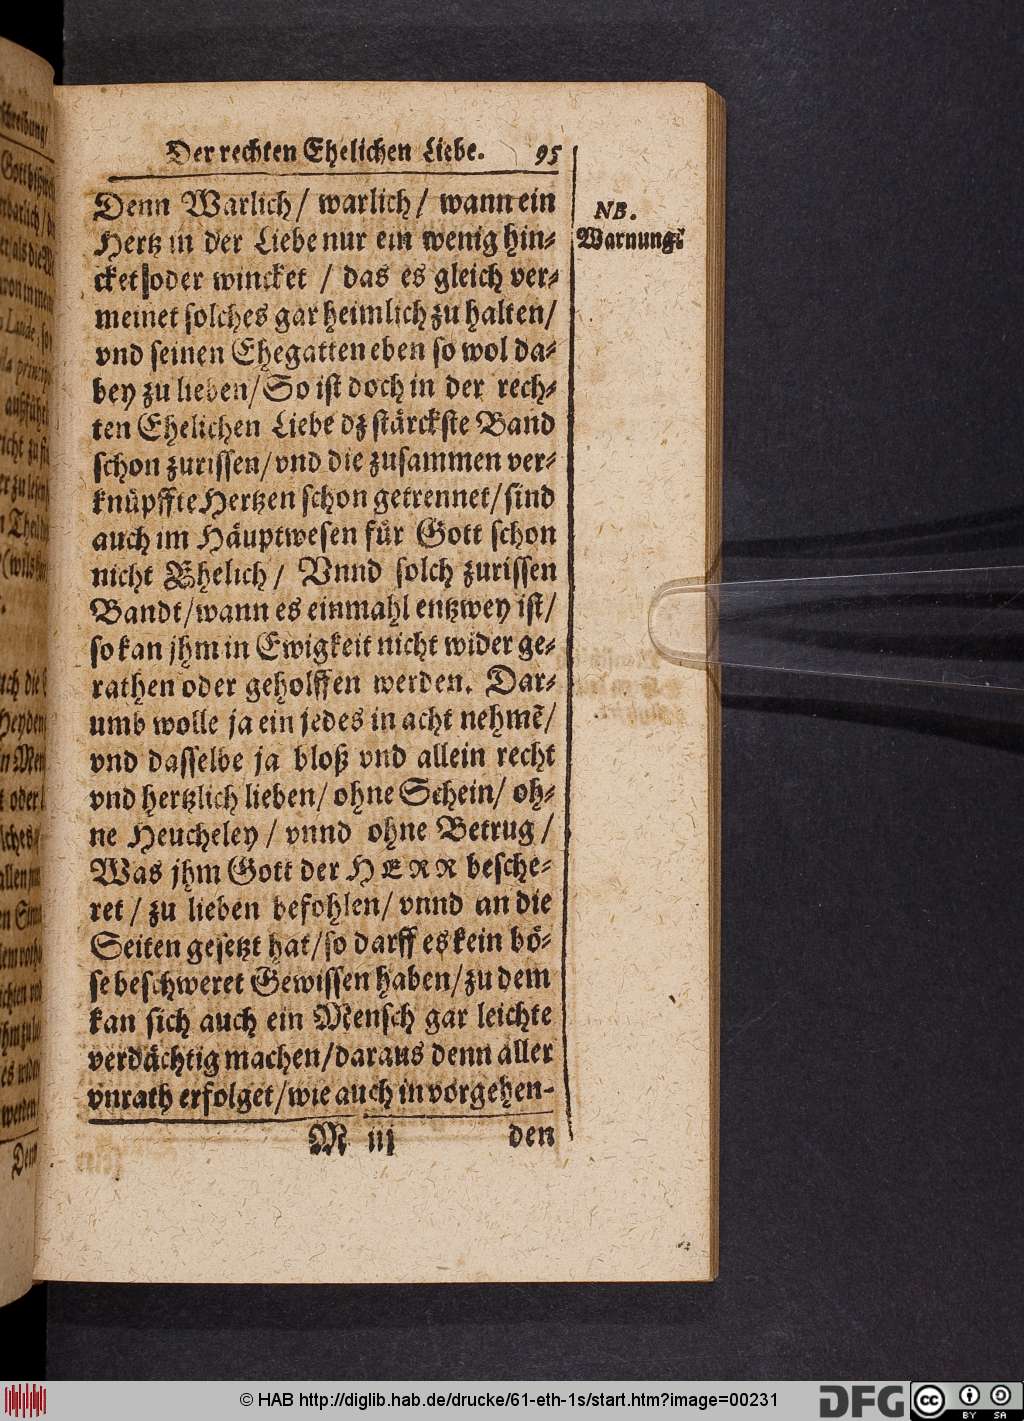 Der rechten Ehelichen Liebe. 95
Denn Warlich/ warlich/ wann ein
Hertz in der Liebe nur ein wenig hin-
cket oder wincket / das es gleich ver-
meinet solches gar heimlich zu halten/
vnd seinen Ehegatten eben so wol da-
bey zu lieben/ So ist doch in der rech-
ten Ehelichen Liebe dz stärckste Band
schon zurissen/ vnd die zusammen ver-
knüpffte Hertzen schon getrennet/ sind
auch im Häuptwesen für Gott schon
nicht Ehelich/ Vnnd solch zurissen
Bandt/ wann es einmahl entzwey ist/
so kan jhm in Ewigkeit nicht wider ge-
rathen oder geholffen werden. Dar-
umb wolle ja ein jedes in acht nehmẽ/
vnd dasselbe ja bloß vnd allein recht
vnd hertzlich lieben/ ohne Schein/ oh-
ne Heucheley / vnnd ohne Betrug /
Was jhm Gott der HERR besche-
ret / zu lieben befohlen/ vnnd an die
Seiten gesetzt hat/ so darff es kein bö-
se beschweret Gewissen haben/ zu dem
kan sich auch ein Mensch gar leichte
verdächtig machen/ daraus denn aller
vnrath erfolget/ wie auch in vorgehen-
M iij den
NB.
Warnung:
© HAB http://diglib.hab.de/drucke/61-eth-1s/start.htm?image=00231
DFG
cc BY SA